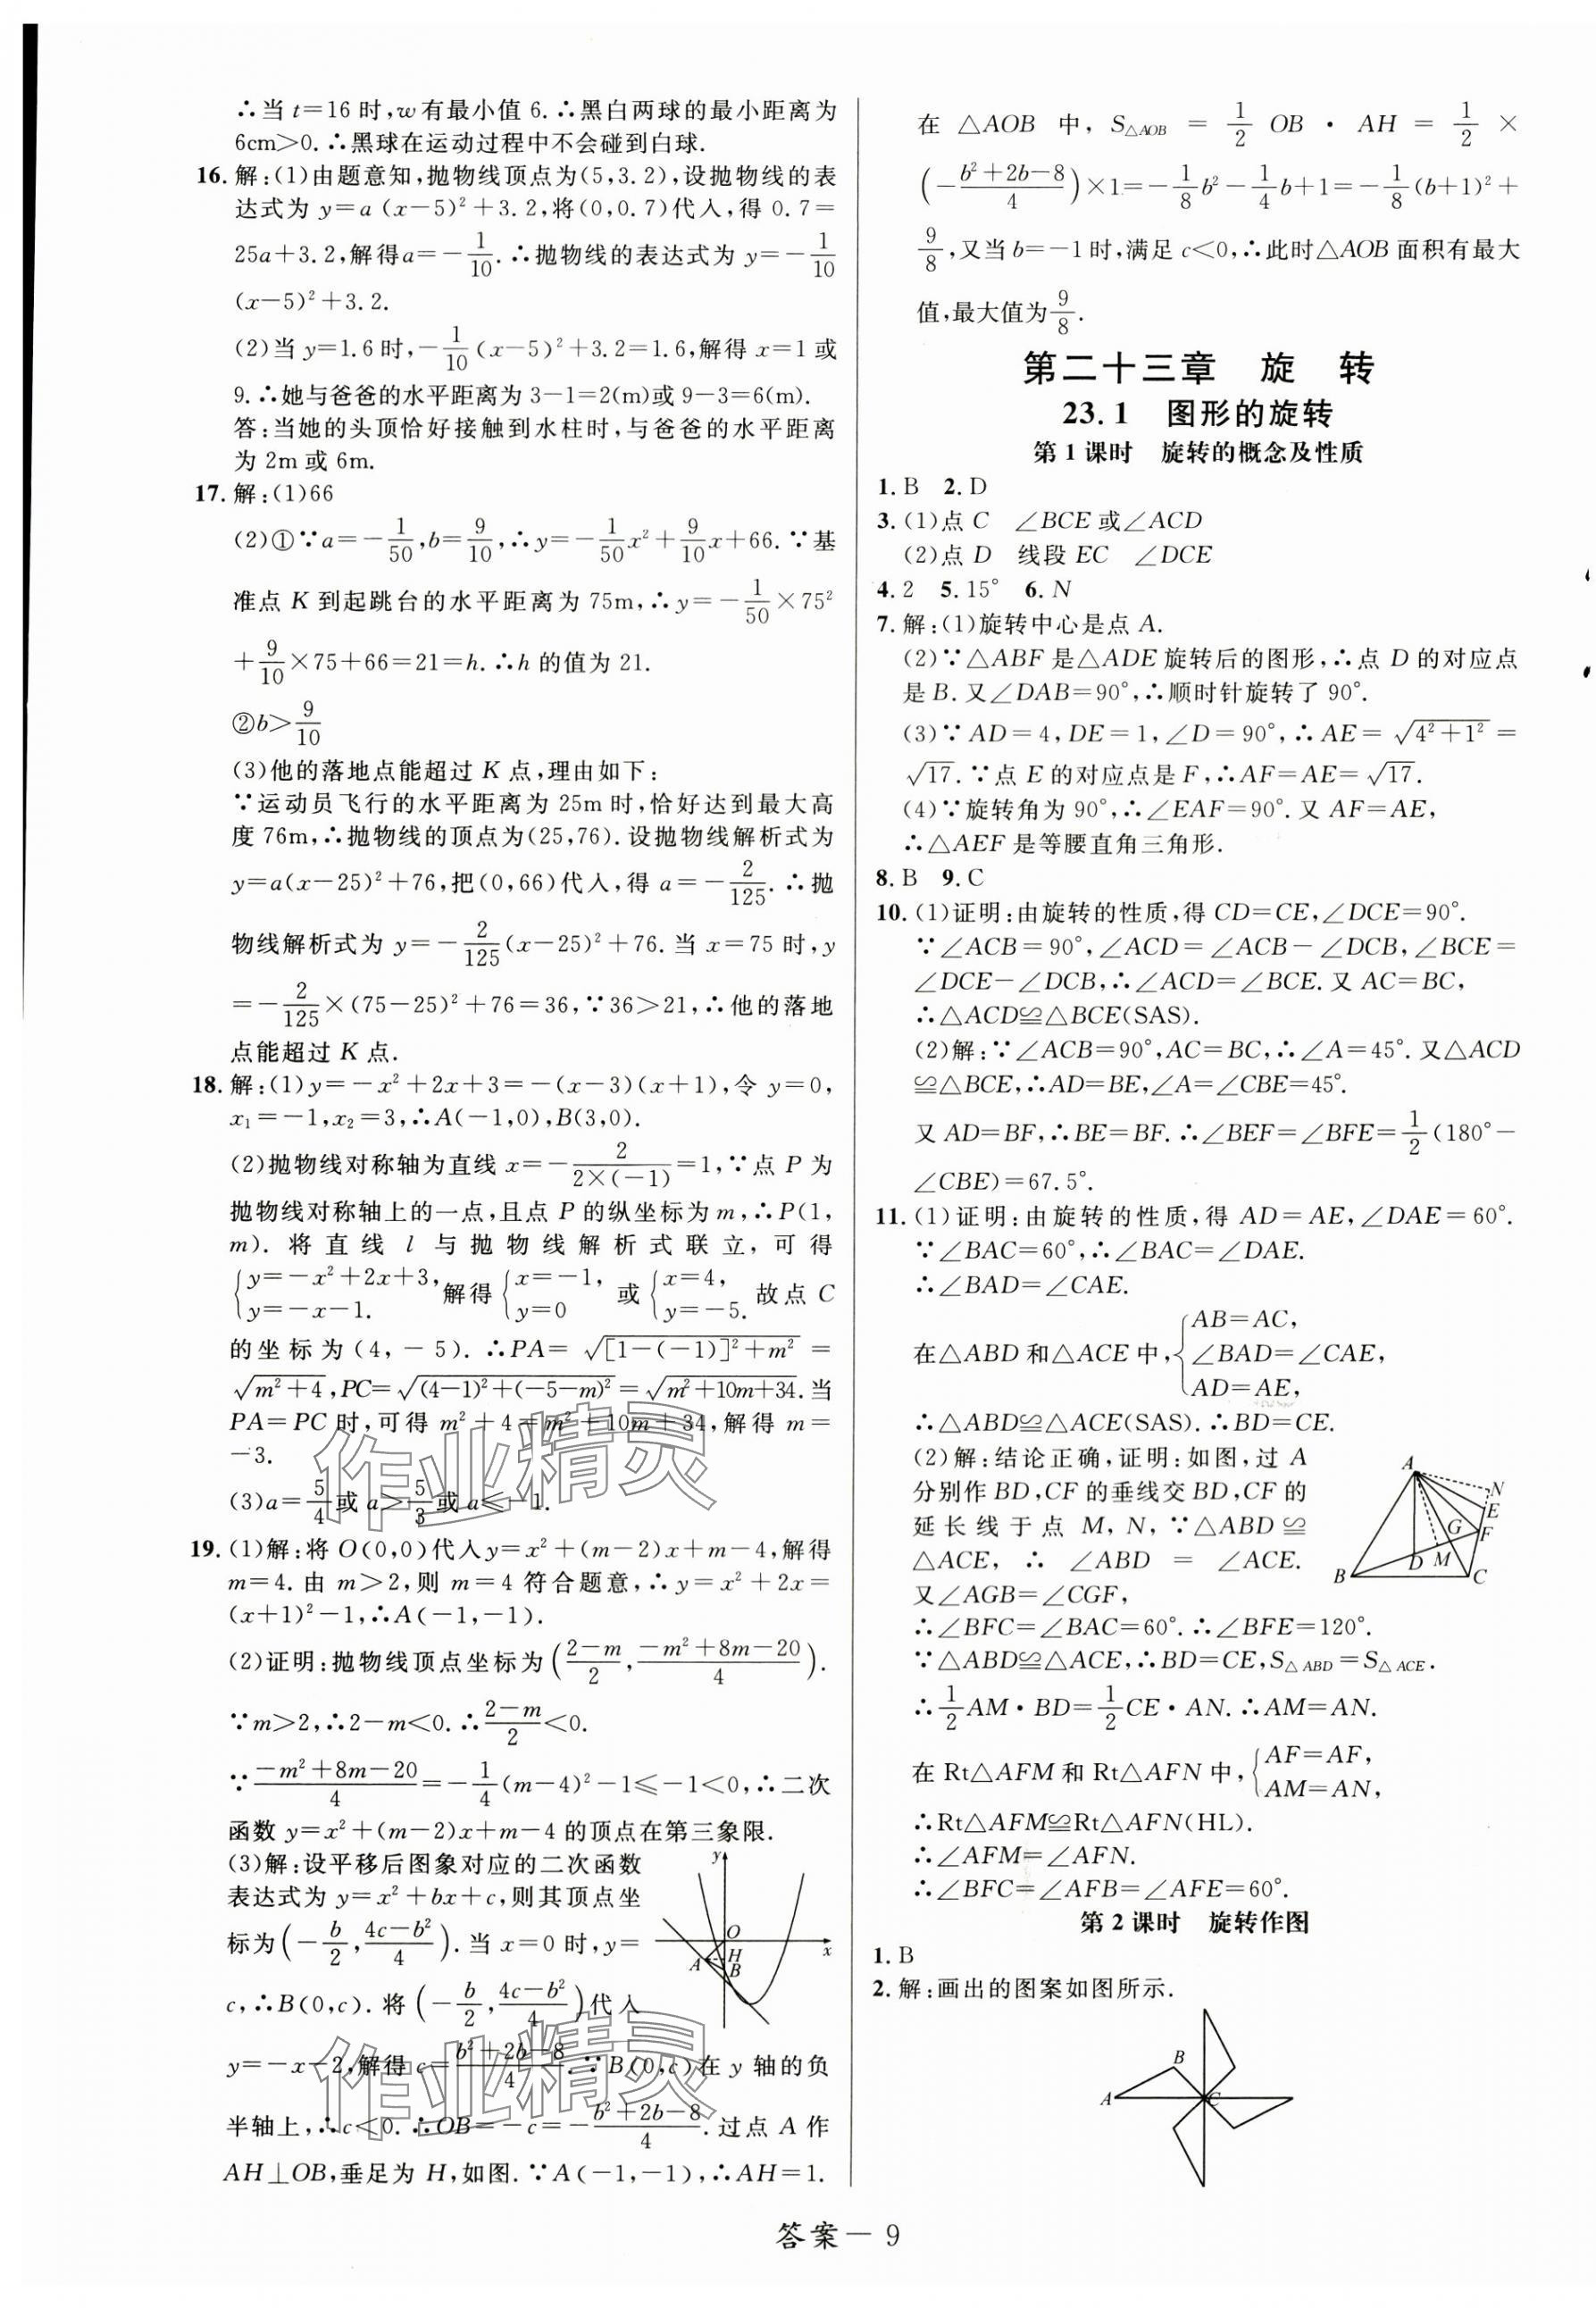 ∴当 t=16 时,w 有最小值 6.∴黑白两球的最小距离为
6cm>0.∴黑球在运动过程中不会碰到白球.
16.解:(1)由题意知,抛物线顶点为(5,3.2),设抛物线的表
达式为 y=a(x-5)²+3.2,将(0,0.7)代入,得 0.7=
25a+3.2,解得a=-1/10.∴抛物线的表达式为 y=-1/10
(x-5)²+3.2.
(2)当 y=1.6时,-1/10(x-5)²+3.2=1.6,解得 x=1 或
9.∴她与爸爸的水平距离为 3-1=2(m)或 9-3=6(m).
答:当她的头顶恰好接触到水柱时,与爸爸的水平距离
为 2m 或 6m.
17.解:(1)66
(2)①∵a=-1/50,b=9/10,∴y=-1/50x²+9/10x+66.∵基
准点 K 到起跳台的水平距离为 75m,∴y=-1/50×75²
+9/10×75+66=21=h.∴h 的值为 21.
②b>9/10
(3)他的落地点能超过 K 点,理由如下:
∵运动员飞行的水平距离为 25m 时,恰好达到最大高
度 76m,∴抛物线的顶点为(25,76).设抛物线解析式为
y=a(x-25)²+76,把(0,66)代入,得 a=-2/125.∴抛
物线解析式为 y=-2/125(x-25)²+76.当 x=75 时,y
=-2/125×(75-25)²+76=36,∵36>21,∴他的落地
点能超过 K 点.
18.解:(1)y=-x²+2x+3=-(x-3)(x+1),令 y=0,
x₁=-1,x₂=3,∴A(-1,0),B(3,0).
(2)抛物线对称轴为直线 x=-2/(2×(-1))=1,∵点 P 为
抛物线对称轴上的一点,且点 P 的纵坐标为 m,∴P(1,
m).将直线 l 与抛物线解析式联立,可得
{y=-x²+2x+3, y=-x-1. 解得{x=-1, y=0 或{x=4, y=-5. 故点 C
的坐标为(4,-5).∴PA=√([1-(-1)]²+m²)=
√(m²+4),PC=√((4-1)²+(-5-m)²)=√(m²+10m+34).当
PA=PC 时,可得 m²+4=m²+10m+34,解得 m=
-3.
(3)a=5/4或 a>5/3或 a≤-1.
19.(1)解:将 O(0,0)代入y=x²+(m-2)x+m-4,解得
m=4.由 m>2,则 m=4 符合题意,∴y=x²+2x=
(x+1)²-1,∴A(-1,-1).
(2)证明:抛物线顶点坐标为((2-m)/2,(-m²+8m-20)/4).
∵m>2,∴2-m<0.∴(2-m)/2<0.
∵(-m²+8m-20)/4=-1/4(m-4)²-1≤-1<0,∴二次
函数 y=x²+(m-2)x+m-4 的顶点在第三象限.
(3)解:设平移后图象对应的二次函数
表达式为 y=x²+bx+c,则其顶点坐
标为(-b/2,(4c-b²)/4).当 x=0 时,y=
c,∴B(0,c).将(-b/2,(4c-b²)/4)代入
y=-x-2,解得 c=(b²+2b-8)/4.∵B(0,c)在 y 轴的负
半轴上,∴c<0.∴OB=-c=-(b²+2b-8)/4.过点 A 作
AH⊥OB,垂足为 H,如图.∵A(-1,-1),∴AH=1.
y
O
H
x
A
B
在 △AOB 中,S△AOB=1/2 OB·AH=1/2×
(-(b²+2b-8)/4)×1=-1/8b²-1/4b+1=-1/8(b+1)²+
9/8,又当 b=-1时,满足 c<0,∴此时△AOB 面积有最大
值,最大值为9/8.
第二十三章 旋 转
23.1 图形的旋转
第 1 课时 旋转的概念及性质
1.B 2.D
3.(1)点 C ∠BCE 或∠ACD
(2)点 D 线段 EC ∠DCE
4.2 5.15° 6.N
7.解:(1)旋转中心是点 A.
(2)∵△ABF 是△ADE 旋转后的图形,∴点 D 的对应点
是 B.又∠DAB=90°,∴顺时针旋转了 90°.
(3)∵AD=4,DE=1,∠D=90°,∴AE=√(4²+1²)=
√17.∵点 E 的对应点是 F,∴AF=AE=√17.
(4)∵旋转角为 90°,∴∠EAF=90°.又 AF=AE,
∴△AEF 是等腰直角三角形.
8.B 9.C
10.(1)证明:由旋转的性质,得 CD=CE,∠DCE=90°.
∵∠ACB=90°,∠ACD=∠ACB-∠DCB,∠BCE=
∠DCE-∠DCB,∴∠ACD=∠BCE.又 AC=BC,
∴△ACD≌△BCE(SAS).
(2)解:∵∠ACB=90°,AC=BC,∴∠A=45°.又△ACD
≌△BCE,∴AD=BE,∠A=∠CBE=45°.
又 AD=BF,∴BE=BF.∴∠BEF=∠BFE=1/2(180°-
∠CBE)=67.5°.
11.(1)证明:由旋转的性质,得 AD=AE,∠DAE=60°.
∵∠BAC=60°,∴∠BAC=∠DAE.
∴∠BAD=∠CAE.
在△ABD 和△ACE 中,{AB=AC, ∠BAD=∠CAE, AD=AE,
∴△ABD≌△ACE(SAS).∴BD=CE.
(2)解:结论正确,证明:如图,过 A
分别作 BD,CF 的垂线交 BD,CF 的
延长线于点 M,N,∵△ABD≌
△ACE,∴∠ABD=∠ACE.
又∠AGB=∠CGF,
∴∠BFC=∠BAC=60°.∴∠BFE=120°.
∵△ABD≌△ACE,∴BD=CE,S△ABD=S△ACE.
∴1/2AM·BD=1/2CE·AN.∴AM=AN.
在 Rt△AFM 和 Rt△AFN 中,{AF=AF, AM=AN,
∴Rt△AFM≌Rt△AFN(HL).
∴∠AFM=∠AFN.
∴∠BFC=∠AFB=∠AFE=60°.
A
N
E
G
F
D
M
B
C
第 2 课时 旋转作图
1.B
2.解:画出的图案如图所示.
B
A
C
作业精灵
作业精灵
答案—9